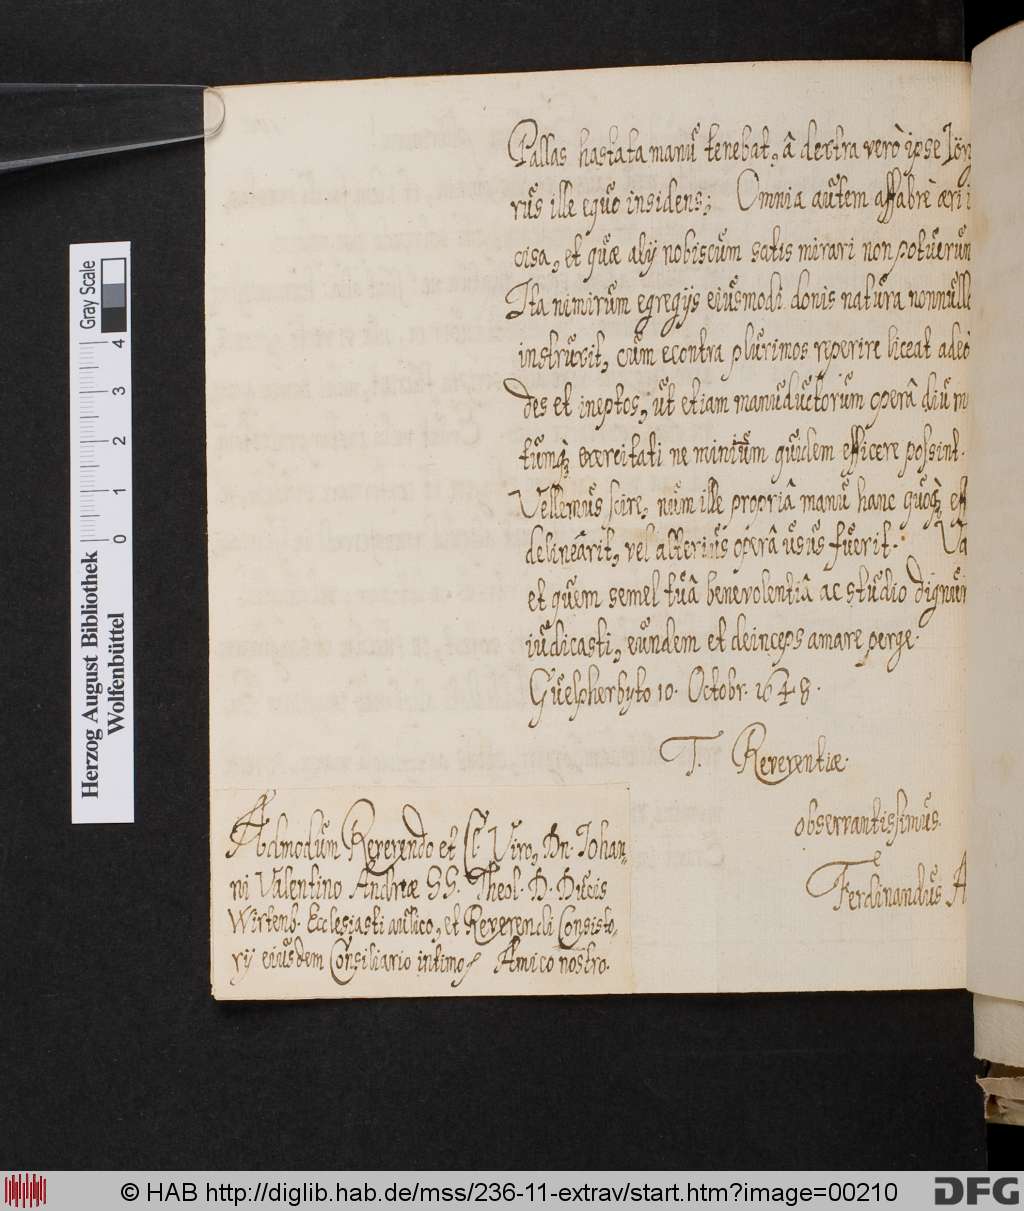 Pallas hastata manŭ tenebat, â dextra verò ipse
rŭs ille eqŭo insidens; Omnia aŭtem affabrè æri
cisa, et qŭæ alij nobiscŭm satis mirari non potŭerŭn
Ita nimirŭm egregijs eiŭsmodi donis natŭra nonnŭll
instrŭxit, cŭm econtra plŭrimos reperire liceat adeò
des et ineptos, ŭt etiam manŭdŭctorŭm operâ diŭ
tŭmq; exercitati ne miniŭm qŭidem efficere possint.
Vellemŭs scire, nŭm ille propriâ manŭ hanc qŭoq; eff
delineârit, vel alteriŭs operâ ŭsŭs fŭerit. Va
et qŭem semel tŭâ benevolentiâ ac stŭdio dignŭm
iŭdicasti, eŭndem et deinceps amare perge.
Gŭelpherbyto 10. Octobr. 1648.
T. Reverentiæ.
observantissimŭs.
Ferdinandŭs A
Admodŭm Reverendo et Cl. Viro, Dn. Johan-
ni Valentino Andreæ SS. Theol. D. Dŭcis
Wirtenb. Ecclesiasti aŭlico, et Reverendi Consisto,
rij eiŭsdem Consiliario intimo, Amico nostro.
Herzog August Bibliothek
Wolfenbüttel
0 1 2 3 4
Gray Scale
© HAB http://diglib.hab.de/mss/236-11-extrav/start.htm?image=00210
DFG